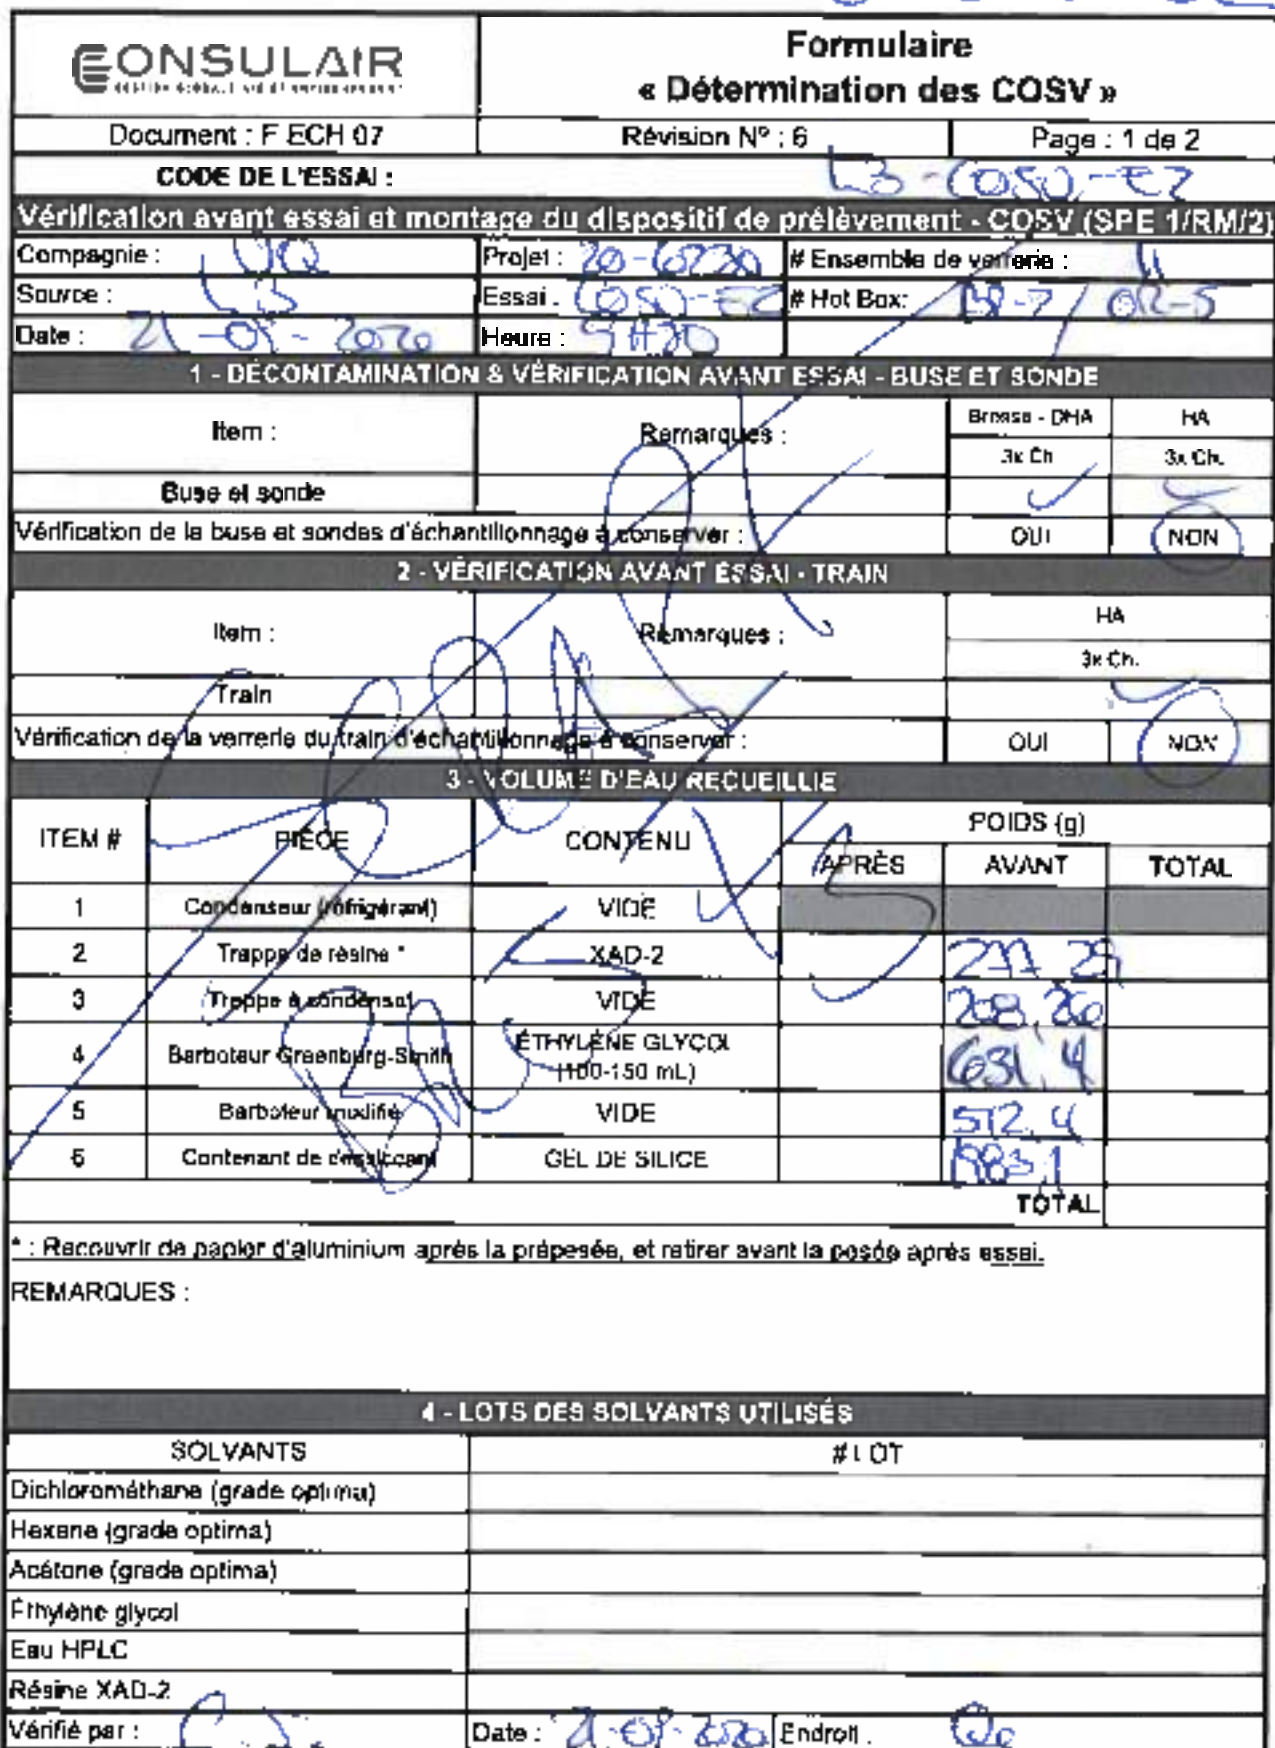 CONSULAIR
Formulaire
« Détermination des COSV »
Document : F ECH 07
Révision N° : 6
Page : 1 de 2
CODE DE L'ESSAI :
L3-COSV-E2
Vérification avant essai et montage du dispositif de prélèvement - COSV (SPE 1/RM/2)
Compagnie : UQ
Projet : 20-6720
# Ensemble de verrerie :
Source : L3
Essai : COSV-E2
# Hot Box:
Date :
Heure : 9H20
1 - DÉCONTAMINATION & VÉRIFICATION AVANT ESSAI - BUSE ET SONDE
Item :
Remarques :
Brosse - DHA
HA
3x Ch
3x Ch.
Buse et sonde
Vérification de la buse et sondes d'échantillonnage à conserver :
OUI
NON
2 - VÉRIFICATION AVANT ESSAI - TRAIN
Item :
Remarques :
HA
3x Ch.
Train
Vérification de la verrerie du train d'échantillonnage à conserver :
OUI
NON
3 - VOLUME D'EAU RECUEILLIE
ITEM #
PIÈCE
CONTENU
POIDS (g)
APRÈS
AVANT
TOTAL
1
Condenseur (réfrigérant)
VIDE
2
Trappe de résine *
XAD-2
3
Trappe à condensat
VIDE
208,26
4
Barboteur Greenburg-Smith
ÉTHYLÈNE GLYCOL
(100-150 mL)
631,4
5
Barboteur modifié
VIDE
512,4
6
Contenant de dessiccant
GEL DE SILICE
TOTAL
* : Recouvrir de papier d'aluminium après la prépesée, et retirer avant la pesée après essai.
REMARQUES :
4 - LOTS DES SOLVANTS UTILISÉS
SOLVANTS
# LOT
Dichlorométhane (grade optima)
Hexane (grade optima)
Acétone (grade optima)
Éthylène glycol
Eau HPLC
Résine XAD-2
Vérifié par :
Date :
Endroit :